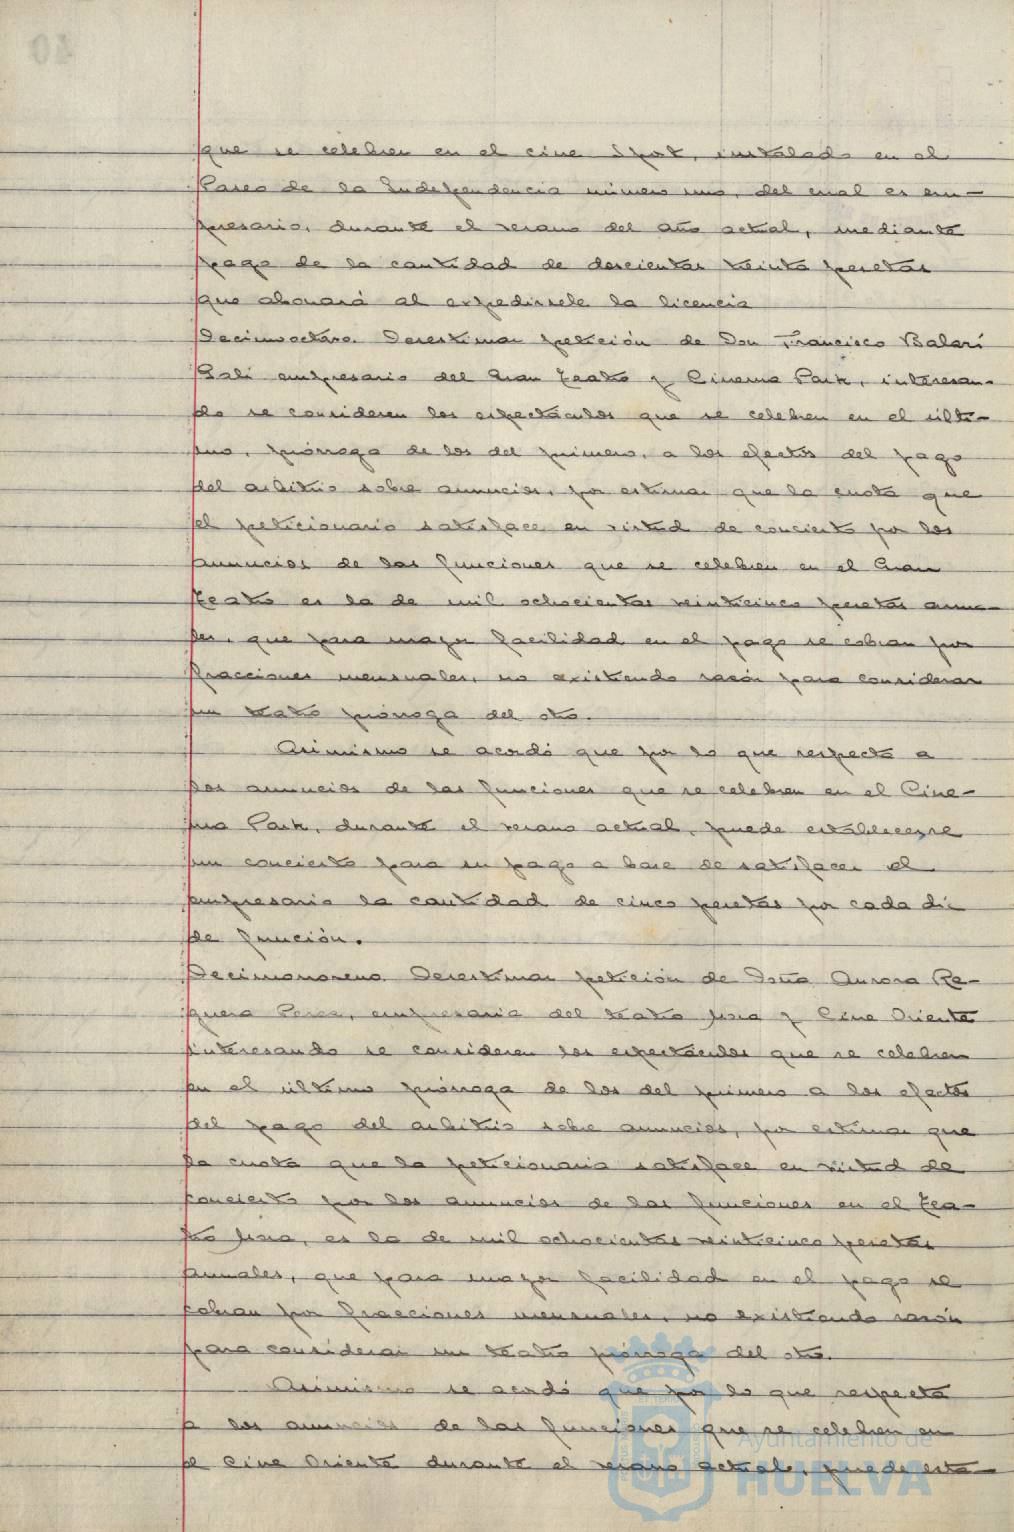 que se celebren en el cine Sport, instalado en el
Paseo de la Independencia número uno, del cual es em-
presario, durante el verano del año actual, mediante
pago de la cantidad de doscientas treinta pesetas
que abonará al expedírsele la licencia
Decimoctavo. Desestimar petición de Don Francisco Balari
Galí empresario del Gran Teatro y Cinema Park, interesan-
do se consideren los espectáculos que se celebren en el últi-
mo, prórroga de los del primero, a los efectos del pago
del arbitrio sobre anuncios, por estimar que la cuota que
el peticionario satisface en virtud de concierto por los
anuncios de las funciones que se celebren en el Gran
Teatro es la de mil ochocientas veinticinco pesetas anua-
les, que para mayor facilidad en el pago se cobran por
fracciones mensuales, no existiendo razón para considerar
un teatro prórroga del otro.
Asimismo se acordó que por lo que respecta a
los anuncios de las funciones que se celebren en el Cine-
ma Park, durante el verano actual, puede establecerse
un concierto para su pago a base de satisfacer el
empresario la cantidad de cinco pesetas por cada día
de función.
Decimonoveno. Desestimar petición de Doña Aurora Re-
guera Perez, empresaria del teatro Mora y Cine Oriente
interesando se consideren los espectáculos que se celebren
en el último prórroga de los del primero a los efectos
del pago del arbitrio sobre anuncios, por estimar que
la cuota que la peticionaria satisface en virtud de
concierto por los anuncios de las funciones en el Tea-
tro Mora, es la de mil ochocientas veinticinco pesetas
anuales, que para mayor facilidad en el pago se
cobran por fracciones mensuales, no existiendo razón
para considerar un teatro prórroga del otro.
Asimismo se acordó que por lo que respecta
a los anuncios de las funciones que se celebren en
el Cine Oriente durante el verano actual, puede esta-
Ayuntamiento de
HUELVA